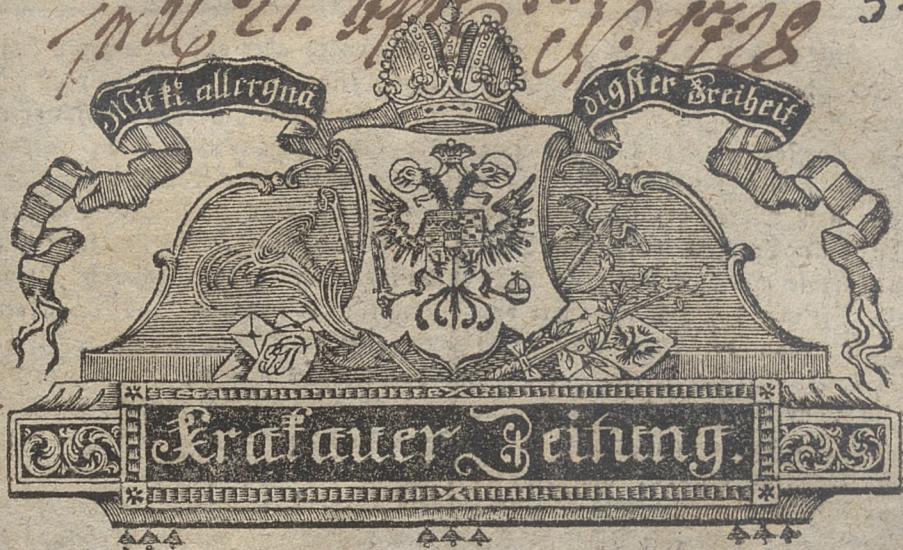 21. N. 1728
Mit ki. allergnä
digster Freiheit.
Krakauer Zeitung.